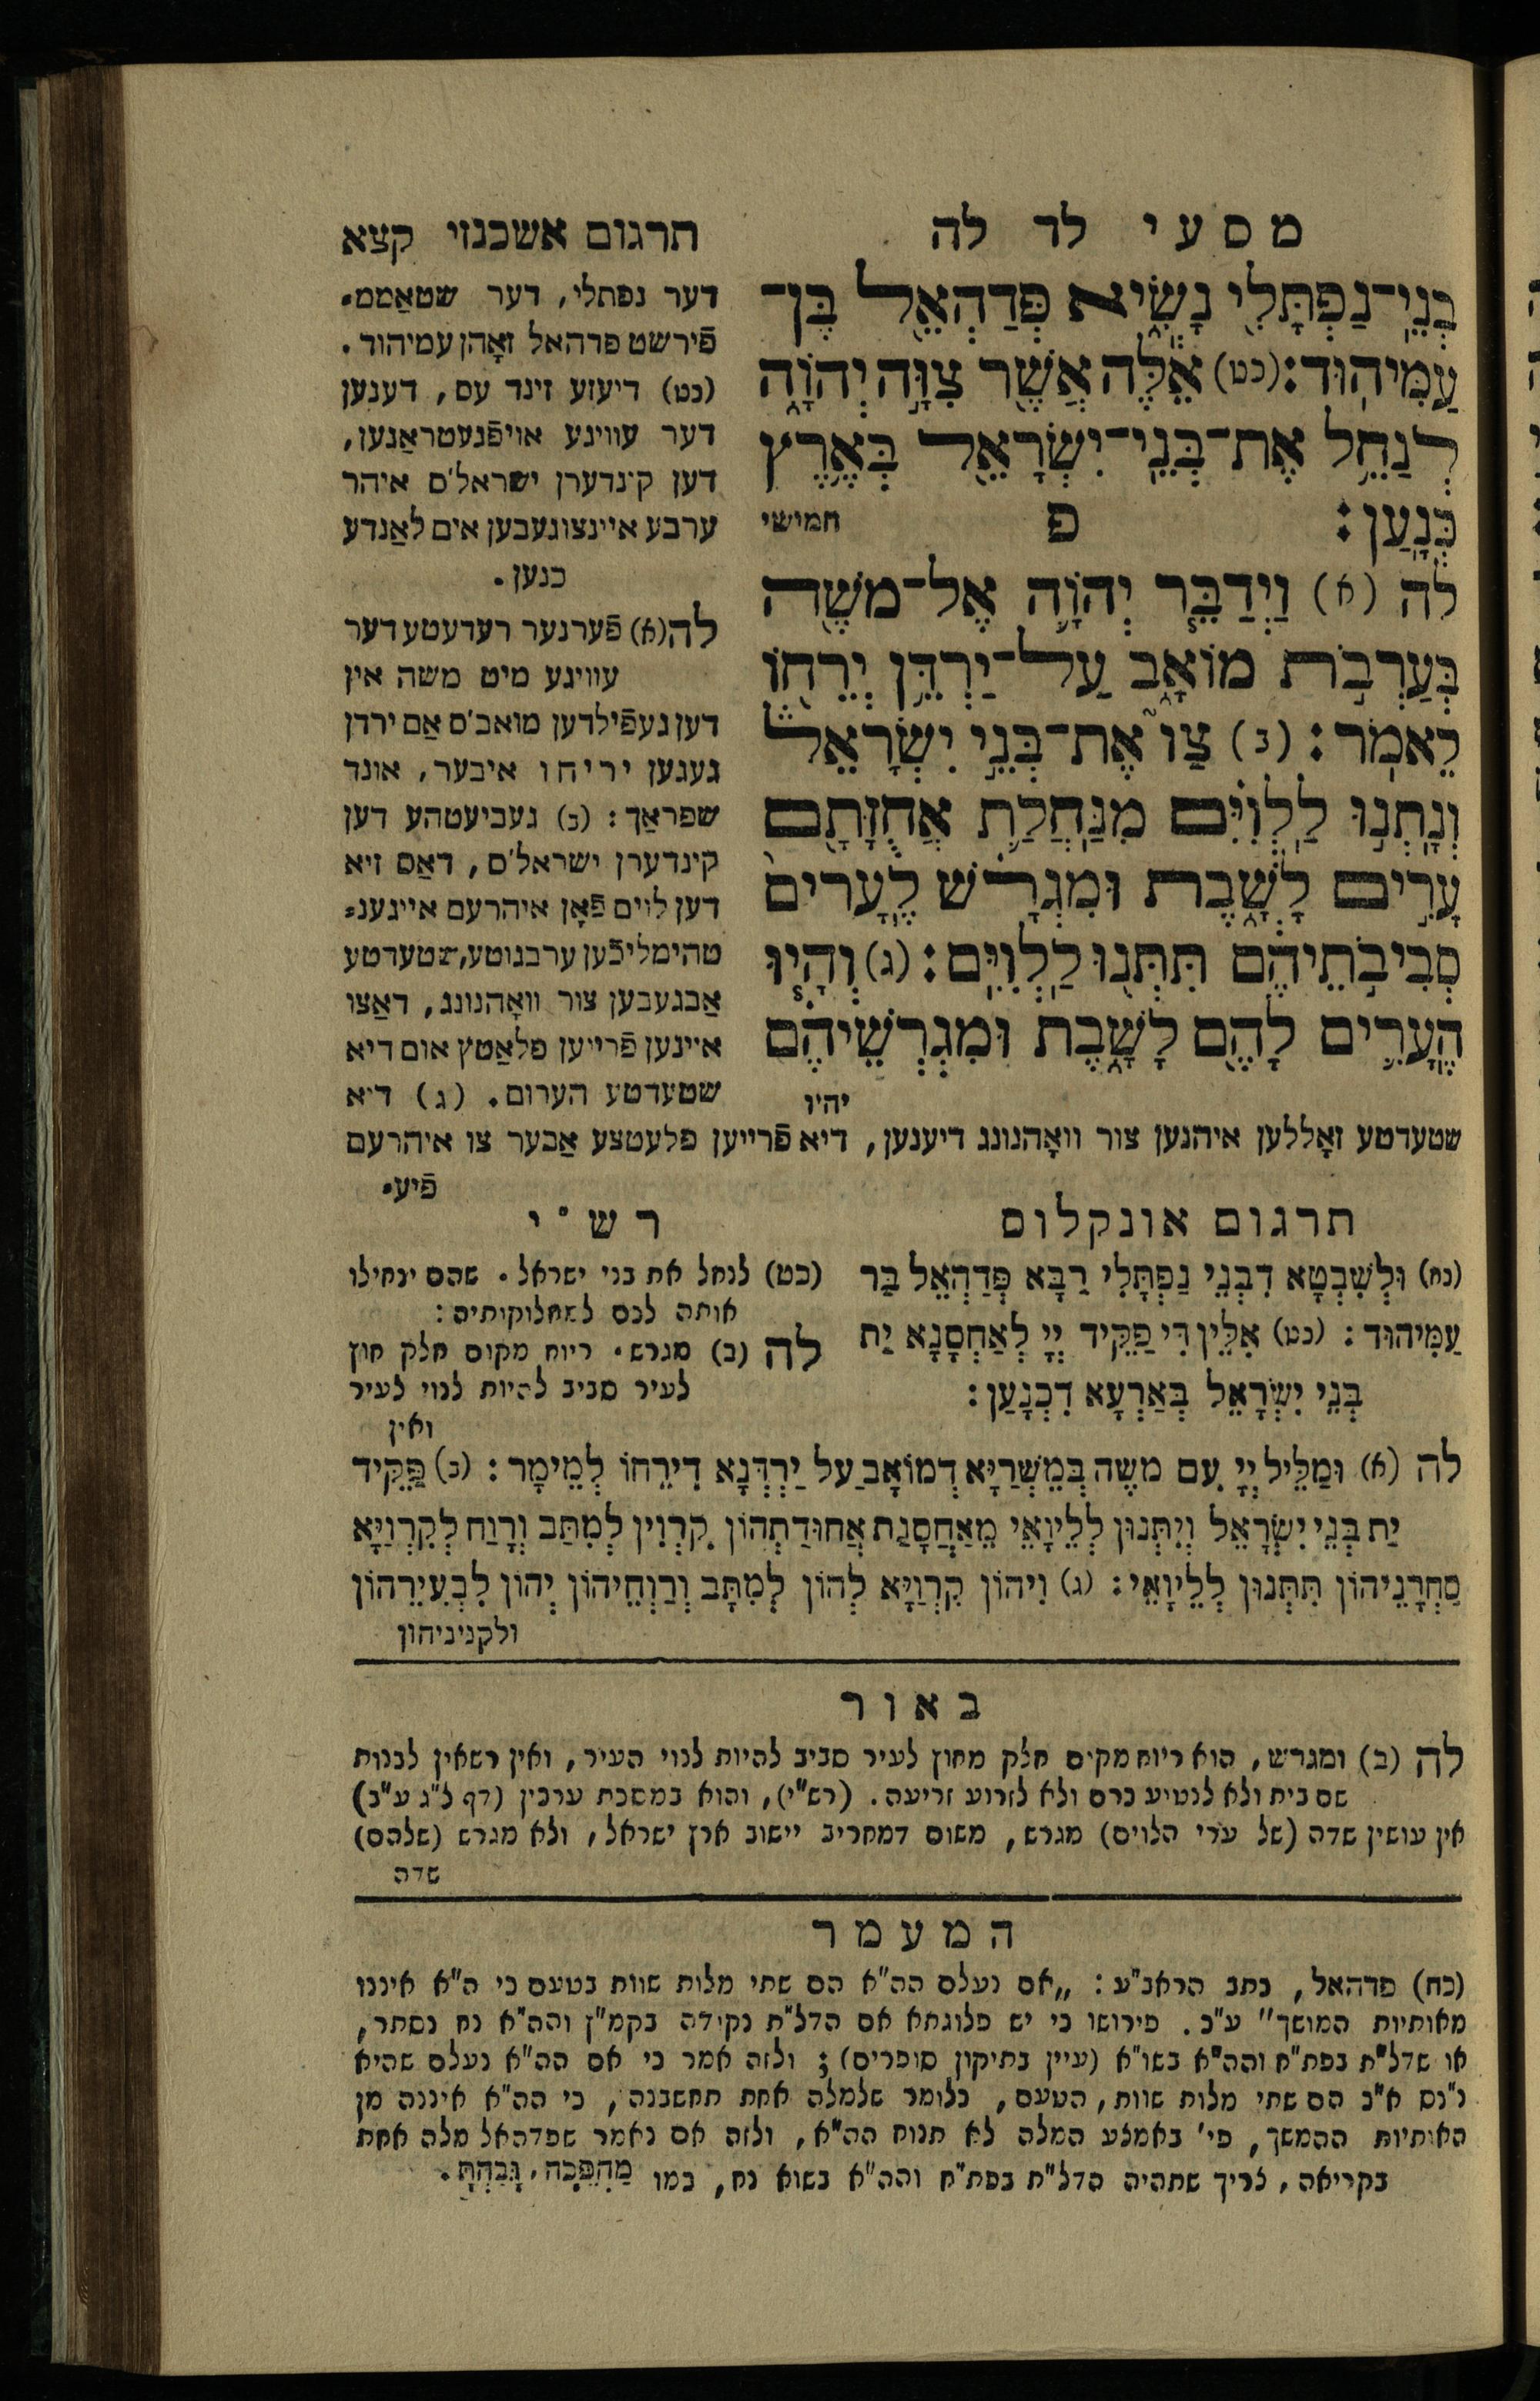 מסעי לד לה
בְּנֵֽי־נַפְתָּלִ֖י נָשִׂ֑יא פְּדַהְאֵ֖ל בֶּן־
עַמִּיהֽוּד׃ (כט) אֵ֕לֶּה אֲשֶׁ֖ר צִוָּ֣ה יְהוָֹ֑ה
לְנַחֵ֥ל אֶת־בְּנֵֽי־יִשְׂרָאֵ֖ל בְּאֶ֥רֶץ
כְּנָֽעַן׃ פ חמישי
לה (א) וַיְדַבֵּ֧ר יְהוָֹ֛ה אֶל־משֶׁ֖ה
בְּעַרְבֹ֣ת מוֹאָ֑ב עַל־יַרְדֵּ֥ן יְרֵח֖וֹ
לֵאמֹֽר׃ (ב) צַו֮ אֶת־בְּנֵ֣י יִשְׂרָאֵל֒
וְנָֽתְנ֣וּ לַֽלְוִיִּ֗ם מִֽנַּחֲלַ֛ת אֲחֻזָּתָ֖ם
עָרִ֣ים לָשָׁ֑בֶת וּמִגְרָ֗שׁ לֶֽעָרִים֙
סְבִיבֹ֣תֵיהֶ֔ם תִּתְּנ֖וּ לַֽלְוִיִּֽם׃ (ג) וְהָי֧וּ
הֶֽעָרִ֛ים לָהֶ֖ם לָשָׁ֑בֶת וּמִגְרְשֵׁיהֶ֗ם
יהיו
תרגום אשכנזי קצא
דער נפתלי, דער שטאַממ⸗
פֿירשט פדהאל זאָהן עמיהוד.
(כט) דיעזע זינד עס, דענען
דער עוויגע אויפֿגעטראַגען,
דען קינדערן ישראל'ס איהר
ערבע איינצוגעבען אים לאַנדע
כנען.
לה (א) פֿערנער רעדעטע דער
עוויגע מיט משה אין
דען געפֿילדען מואב'ס אַם ירדן
געגען יריחו איבער, אונד
שפראַך: (ב) געביעטהע דען
קינדערן ישראל'ס, דאַס זיא
דען לוים פֿאָן איהרעם אייגענ⸗
טהימליכֿען ערבגוטע, שטעדטע
אַבגעבען צור וואָהנונג, דאַצו
איינען פֿרייען פלאַטץ אום דיא
שטעדטע הערום. (ג) דיא
שטעדטע זאָללען איהנען צור וואָהנונג דיענען, דיא פֿרייען פלעטצע אַבער צו איהרעם
פֿיע⸗
תרגום אונקלוס
(כח) וּלְשִׁבְטָא דִבְנֵי נַפְתָּלִי רַבָּא פְּדַהְאֵל בַּר
עַמִּיהוּד: (כט) אִלֵּין דִּי פַקֵּיד יְיָ לְאַחְסָנָא יַת
בְּנֵי יִשְׂרָאֵל בְּאַרְעָא דִכְנָעַן:
רש"י
(כט) לנחל את בני ישראל. שהם ינחילו
אותה לכם למחלוקותיה:
לה (ב) מגרש. ריוח מקום חלק חוץ
לעיר סביב להיות לנוי לעיר
ואין
לה (א) וּמַלֵּיל יְיָ עִם משֶׁה בְּמֵשְׁרַיָּא דְמוֹאָב עַל יַרְדְּנָא דִירֵחוֹ לְמֵימָר: (ב) פַּקֵּיד
יַת בְּנֵי יִשְׂרָאֵל וְיִתְּנוּן לְלֵיוָאֵי מֵאַחֲסָנַת אֲחוּדַתְהוֹן קִרְוִין לְמִתַּב וְרָוַח לְקִרְוַיָּא
סַחְרָנֵיהוֹן תִּתְּנוּן לְלֵיוָאֵי: (ג) וִיהוֹן קִרְוַיָּא לְהוֹן לְמִתָּב וְרַוְחֵיהוֹן יְהוֹן לִבְעִירֵהוֹן
ולקניניהון
באור
לה (ב) ומגרש, הוא ריוח מקום חלק מחוץ לעיר סביב להיות לנוי העיר, ואין רשאין לבנות
שם בית ולא לנטיע כרם ולא לזרוע זריעה. (רש"י), והוא במסכת ערכין (דף ל"ג ע"ב)
אין עושין שדה (של ערי הלוים) מגרש, משום דמחריב יישוב ארץ ישראל, ולא מגרש (שלהם)
שדה
המעמר
(כח) פדהאל, כתב הראב"ע: „אם נעלם הה"א הם שתי מלות שוות בטעם כי ה"א איננו
מאותיות המושך" ע"כ. פירושו כי יש פלוגתא אם הדל"ת נקודה בקמ"ץ והה"א נח נסתר,
או שדל"ת בפת"ח והה"א בשו"א (עיין בתיקון סופרים); ולזה אמר כי אם הה"א נעלם שהיא
נ"נס א"כ הם שתי מלות שוות, הטעם, כלומר שלמלה אחת תחשבנה, כי הה"א איננה מן
האותיות ההמשך, פי' באמצע המלה לא תנוח הה"א, ולזה אם נאמר שפדהאל מלה אחת
בקריאה, צריך שתהיה הדל"ת בפת"ח והה"א בשוא נח, כמו מַהְפֵּכָה, גָּבַהְתָּ.